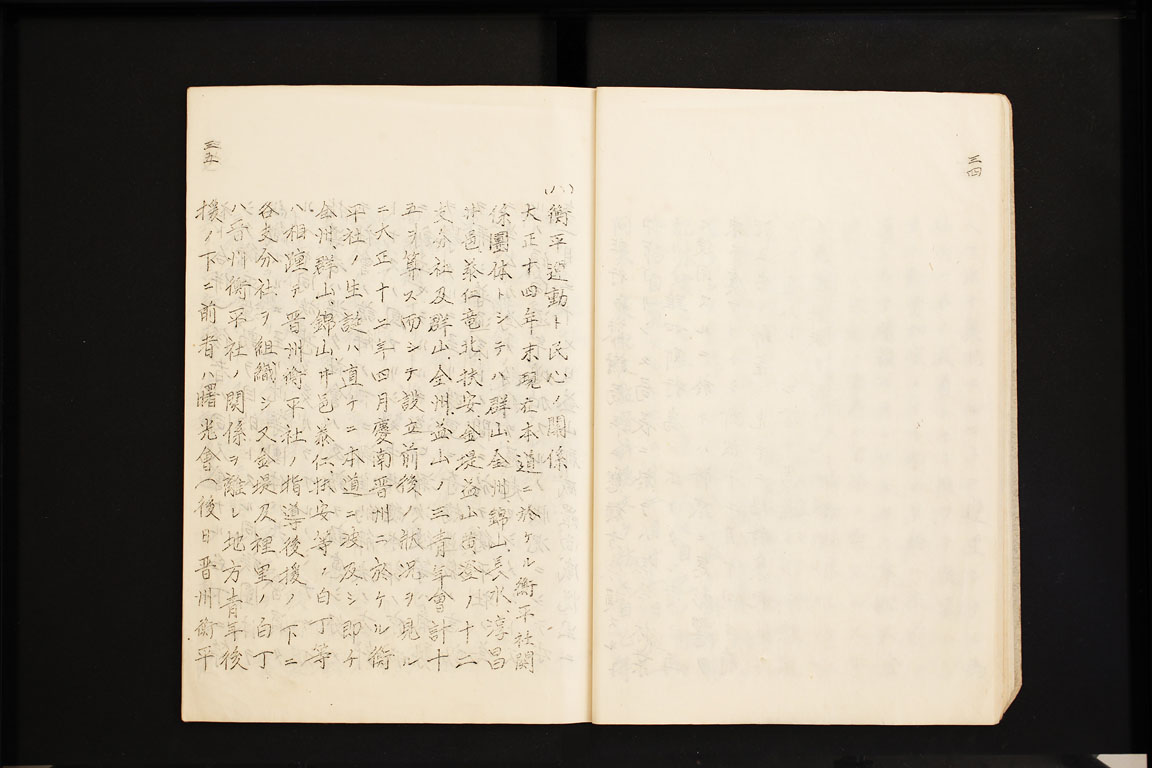 三四
三五
(八)衡平運動ト民心ノ関係
大正十四年末現在本道ニ於ケル衡平社関
係團体トシテハ群山全州錦山、長水、淳昌
井邑、泰仁竜北、扶安、金堤益山、高登ノ十二
支分社及群山全州益山ノ三青年會計十
五ヲ算ス而シテ設立前後ノ状況ヲ見ル
ニ大正十二年四月慶南晋州ニ於ケル衡
平社ノ生誕ハ直チニ本道ニ波及シ即チ
全州、群山、錦山、井邑、泰仁、扶安等ノ白丁等
ハ相凛テ晋州衡平社ノ指導後援ノ下ニ
各支分社ヲ組織シ又金堤及裡里ノ白丁
ハ晋州衡平社ノ関係ヲ離レ地方青年後
援ノ下ニ前者ハ曙光會(後日晋州衡平